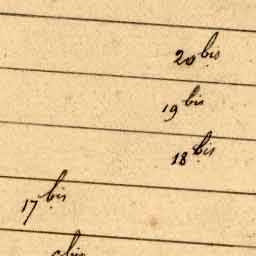 20 bis
19 bis
18 bis
17 bis
bis